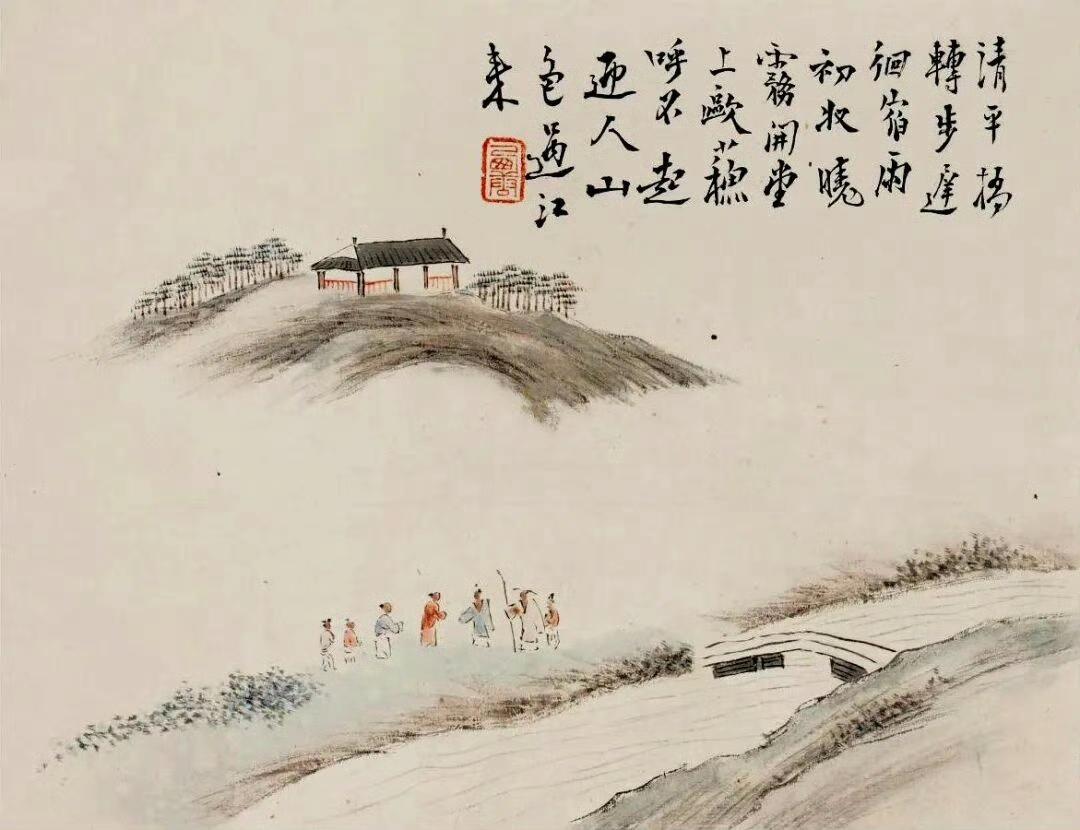 清平橋
轉步遲
徊宿雨
初收曉
霧開堂
上歐蘓
呼不起
迎人山
色過江
來